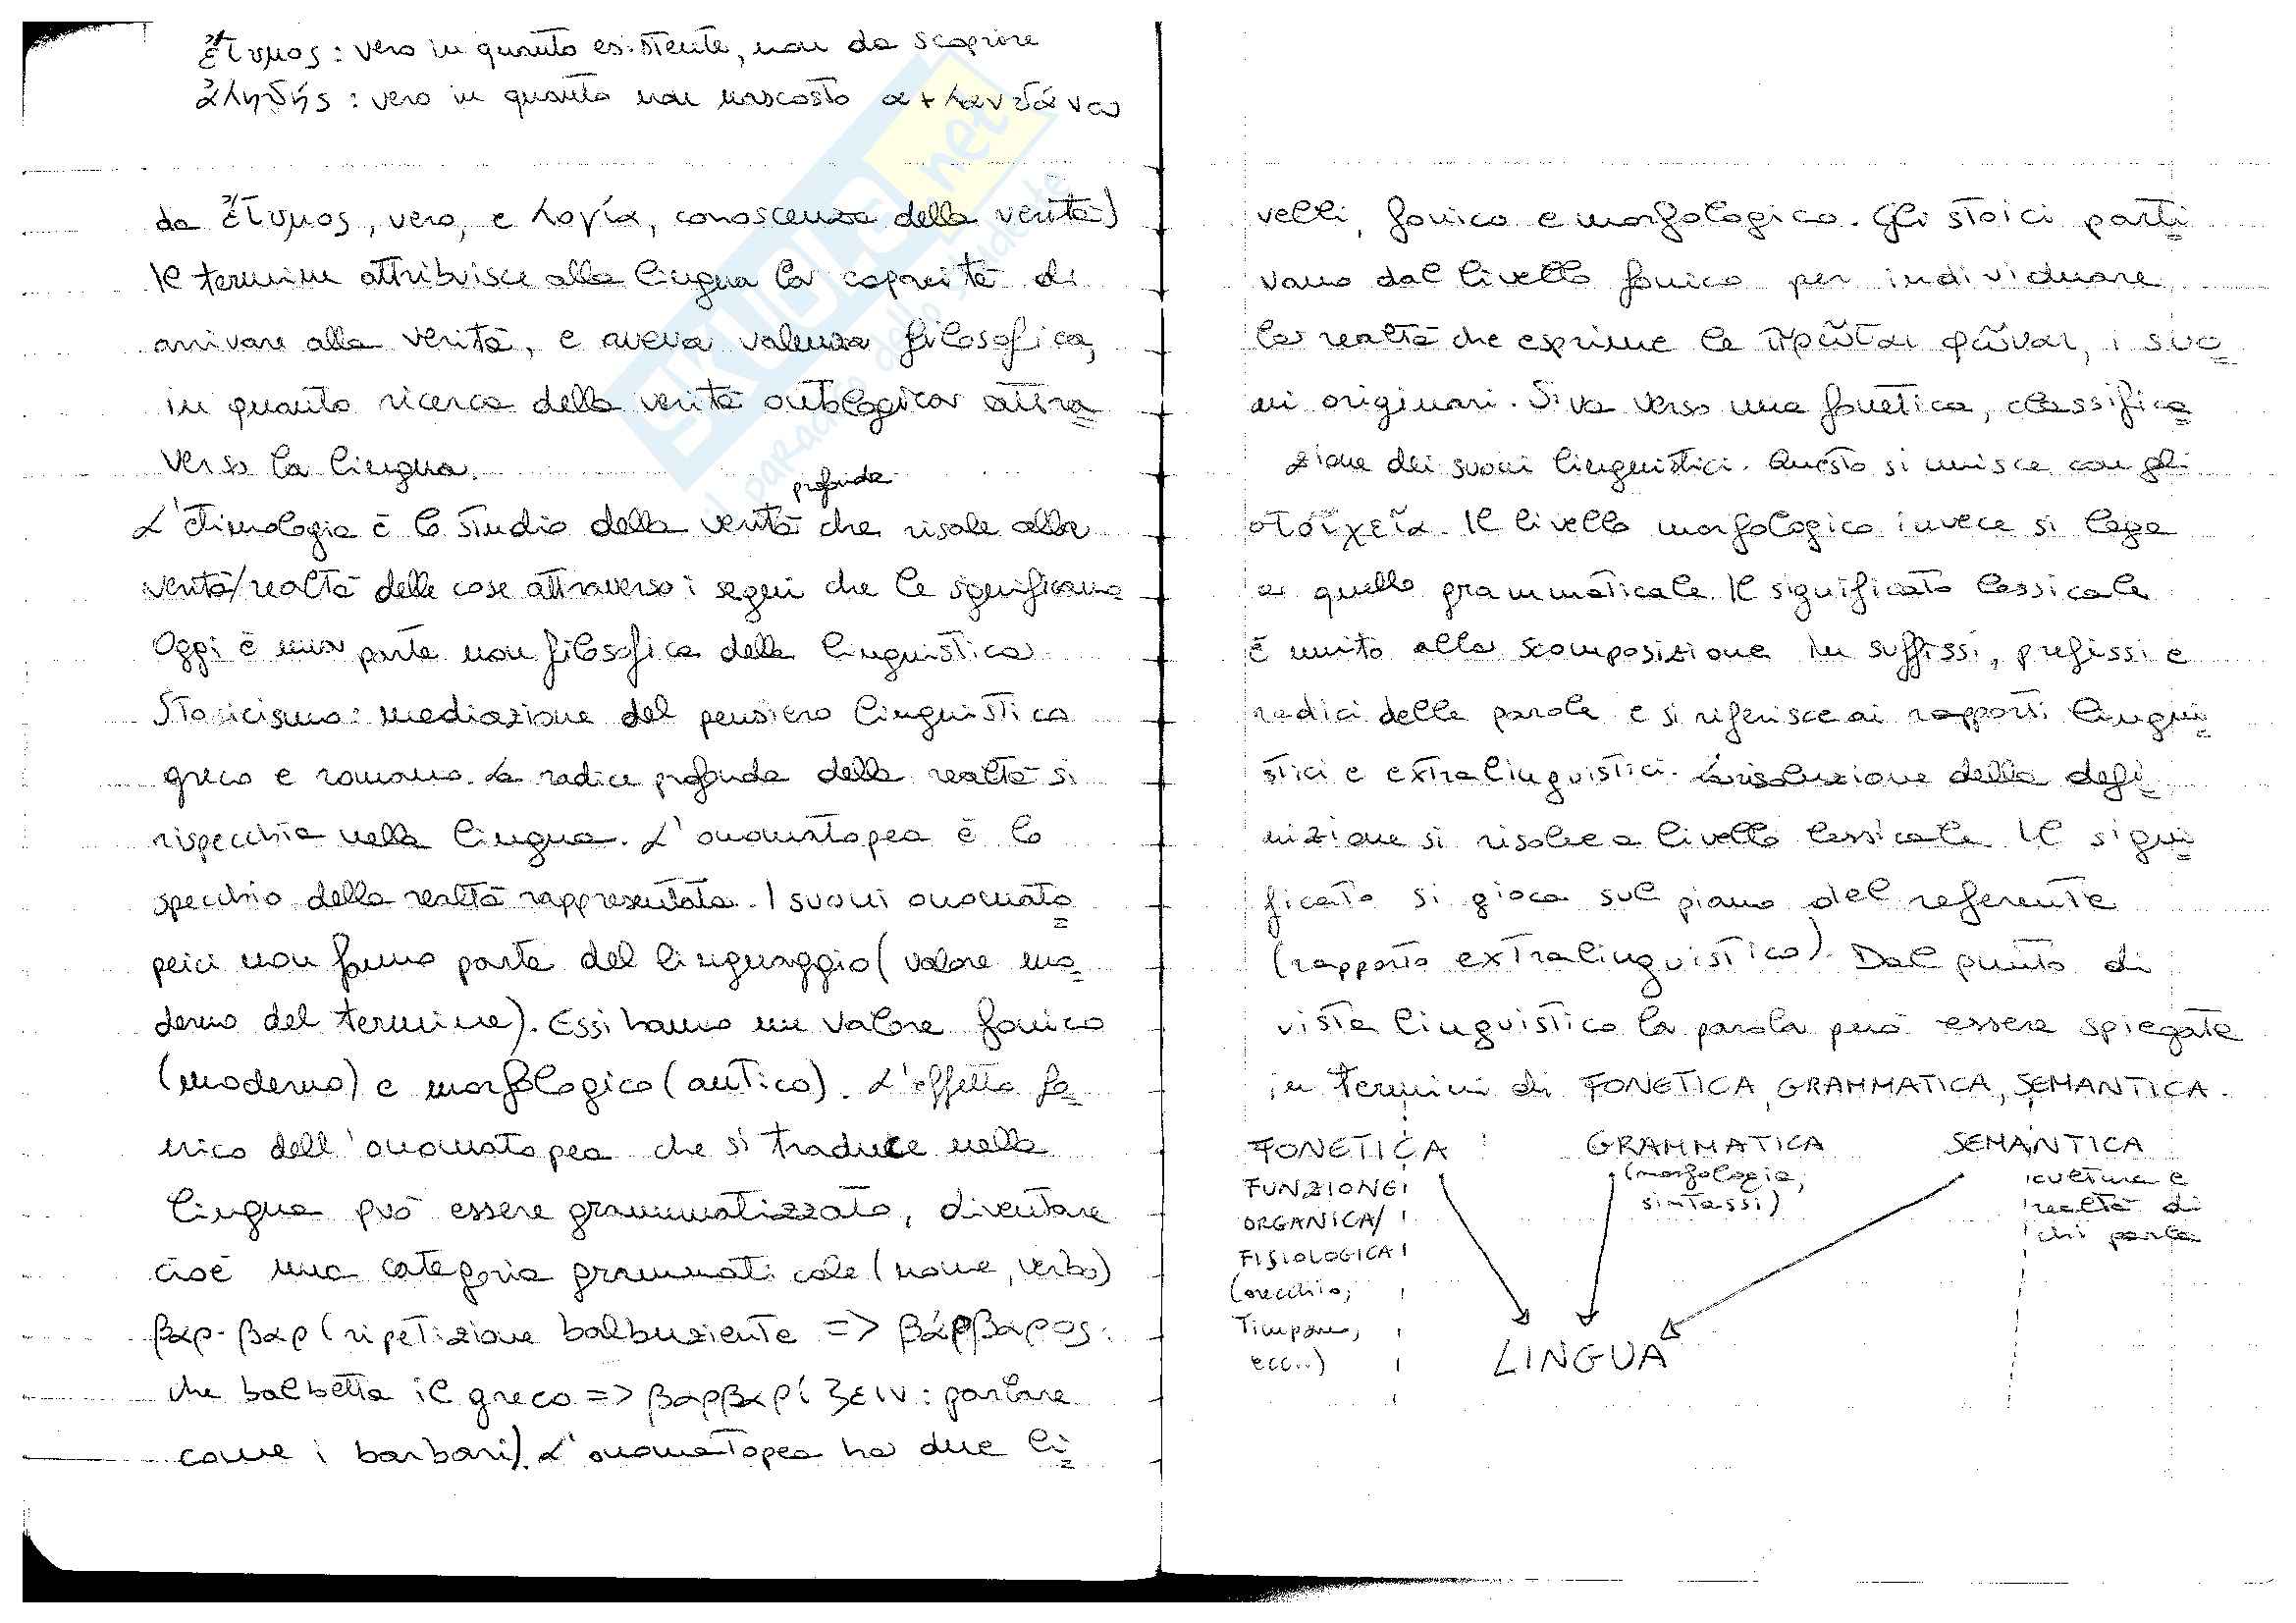 ἔτυμος: vero in quanto esistente, non da scoprire
ἀληθής: vero in quanto non nascosto α + λανθάνω
da ἔτυμος, vero, e λογία, conoscenza della verità)
Il termine attribuisce alla lingua la capacità di
arrivare alla verità, e aveva valenza filosofica,
in quanto ricerca della verità ontologica attra
verso la lingua.
profonda
L'etimologia è lo studio della verità che risale alla
verità/realtà delle cose attraverso i segni che le significano
Oggi è una parte non filosofica della linguistica
Stoicismo: mediazione del pensiero linguistico
greco e romano. La radice profonda della realtà si
rispecchia nella lingua. L'onomatopea è lo
specchio della realtà rappresentata. I suoni onomato
peici non fanno parte del linguaggio (valore mo
derno del termine). Essi hanno un valore fonico
(moderno) e morfologico (antico). L'effetto fo
nico dell'onomatopea che si traduce nella
lingua può essere grammatizzato, diventare
cioè una categoria grammaticale (nome, verbo)
βαρ-βαρ (ripetizione balbuziente => βάρβαρος:
che balbetta il greco => βαρβαρίζειν: parlare
come i barbari). L'onomatopea ha due li
velli, fonico e morfologico. Gli stoici parti
vano dal livello fonico per individuare
la realtà che esprime le πρῶται φῶναι, i suo
ni originari. Si va verso una fonetica, classifica
zione dei suoni linguistici. Questo si unisce con gli
στοῖχεῖα. Il livello morfologico invece si lega
a quello grammaticale. Il significato lessicale
è unito alla scomposizione in suffissi, prefissi e
radici delle parole e si riferisce ai rapporti lingui
stici e extralinguistici. La risoluzione della defi
nizione si risolve a livello lessicale. Il signi
ficato si gioca sul piano del referente
(rapporto extralinguistico). Dal punto di
vista linguistico la parola può essere spiegata
in termini di FONETICA, GRAMMATICA, SEMANTICA.
FONETICA GRAMMATICA SEMANTICA
FUNZIONE
ORGANICA/
FISIOLOGICA
(orecchio,
timpano,
ecc..)
(morfologia,
sintassi)
cultura e
realtà di
chi parla
LINGUA
SKUOLA.net